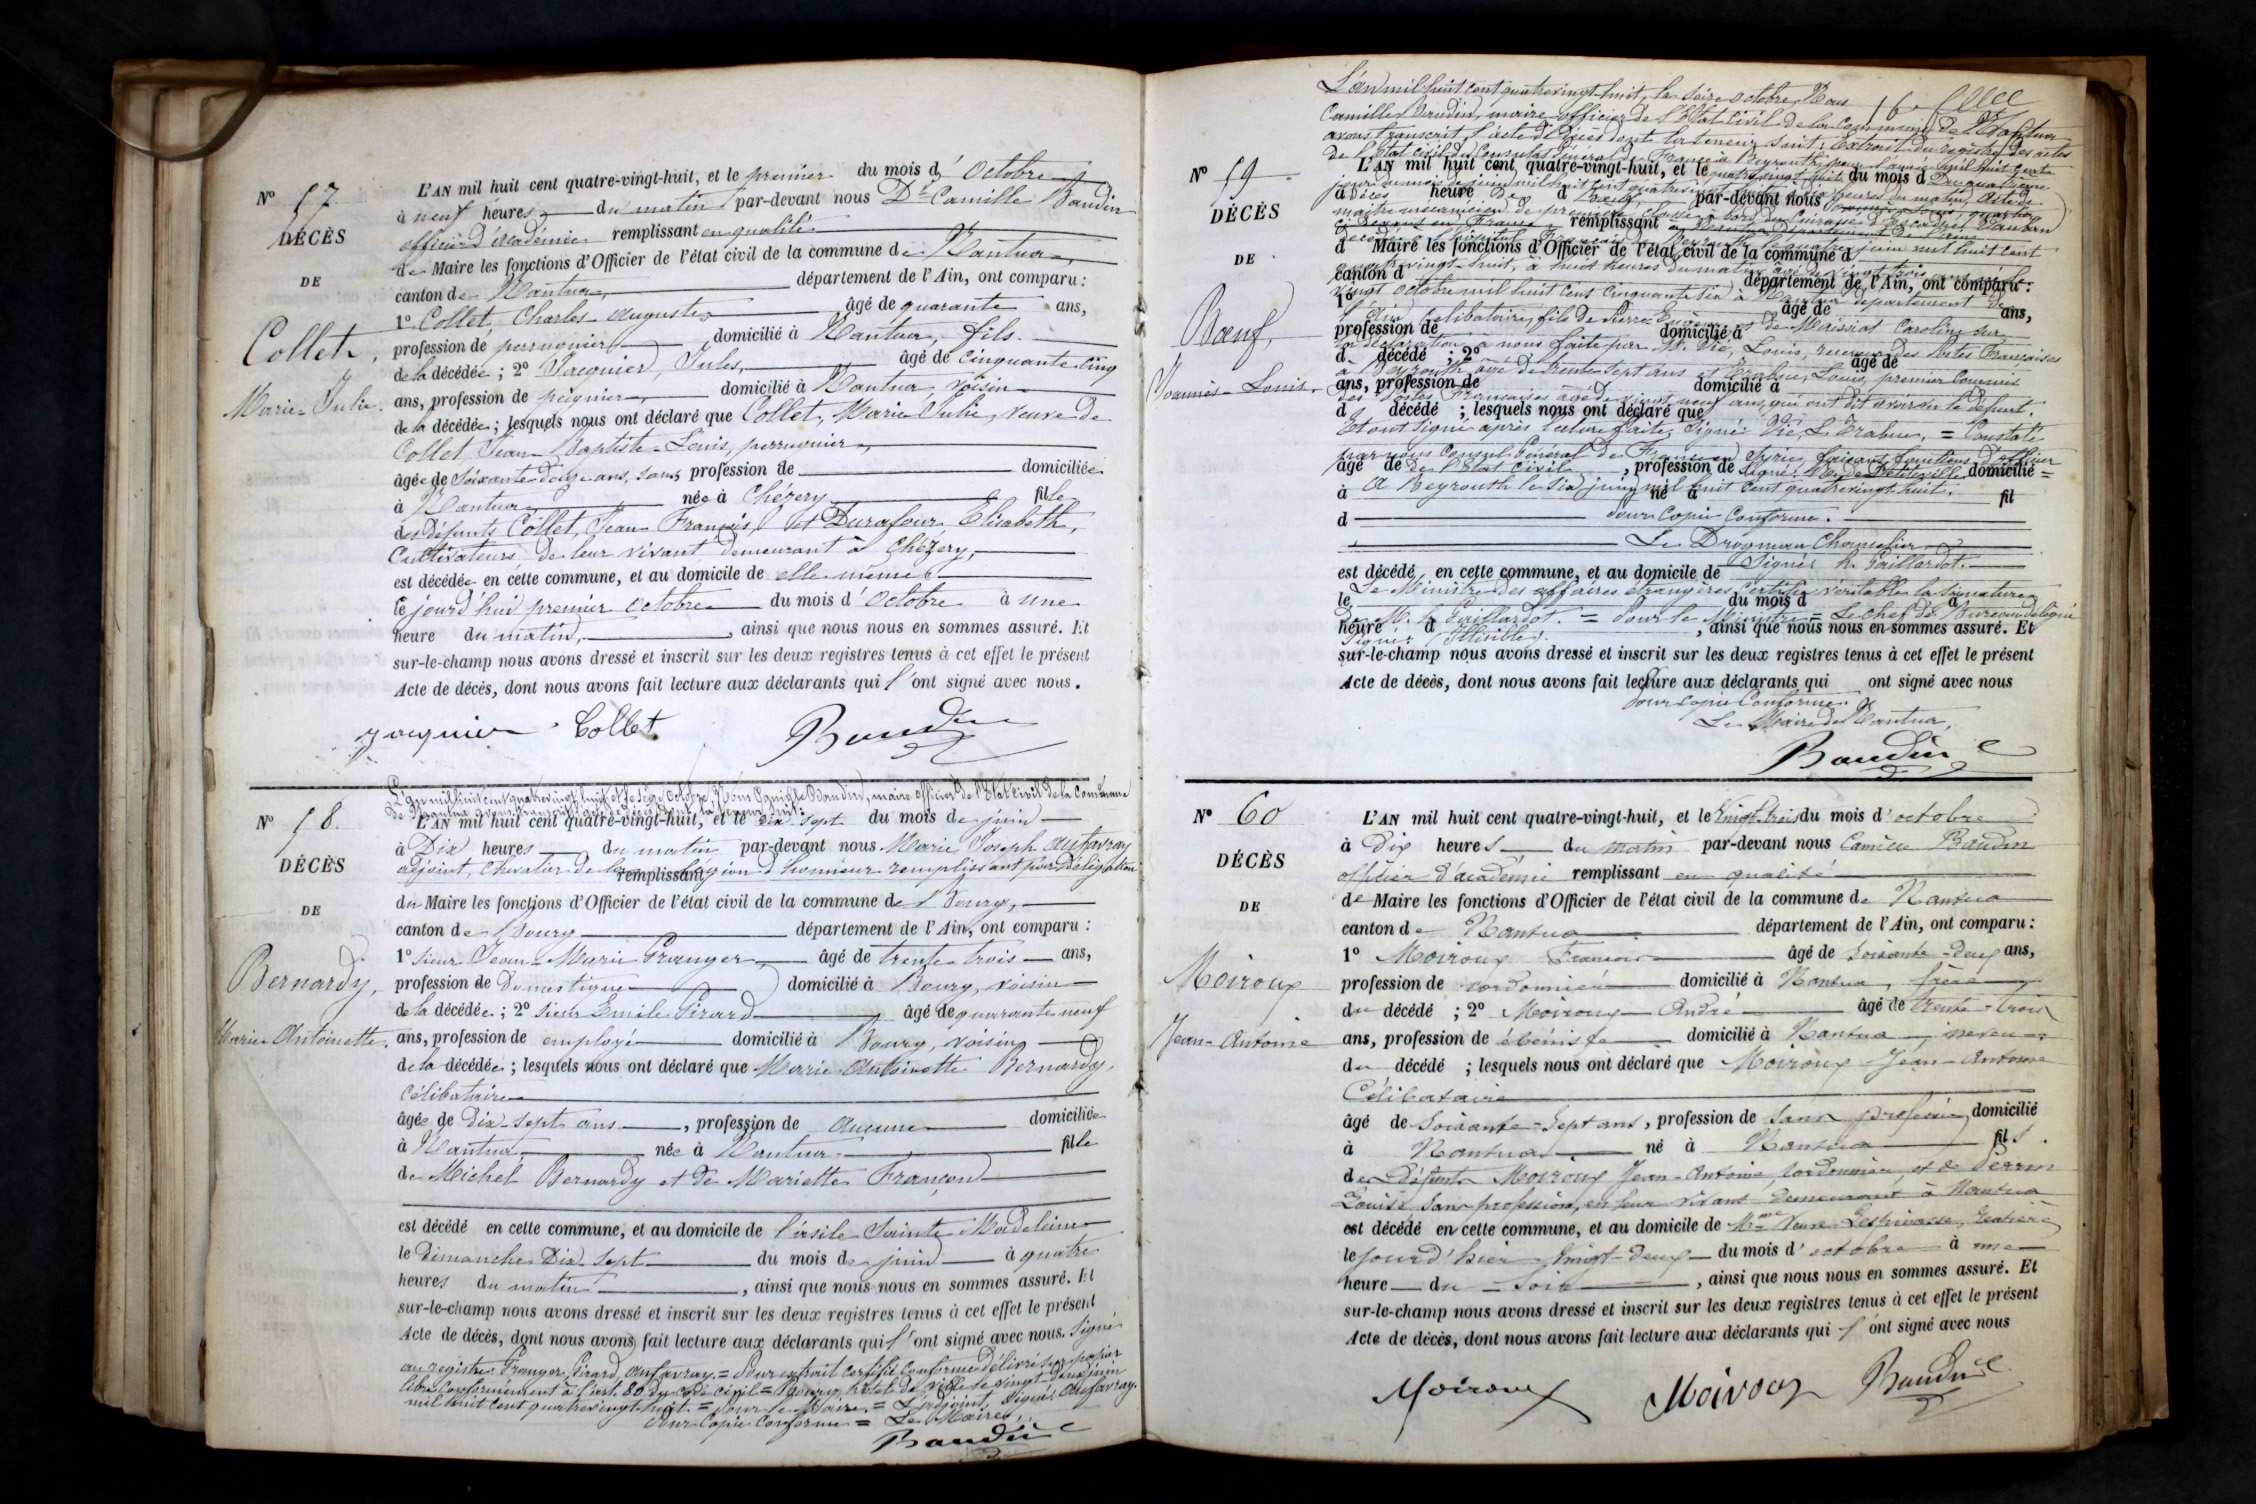 N° 57
DÉCÈS
DE
Collet,
Marie Julie.
L'AN mil huit cent quatre-vingt-huit, et le premier du mois d'Octobre
à neuf heures du matin par-devant nous Dr Camille Baudin
officier d'académie remplissant en qualité
de Maire les fonctions d'Officier de l'état civil de la commune de Nantua,
canton de Nantua, département de l'Ain, ont comparu :
1° Collet, Charles Auguste, âgé de quarante ans,
profession de perruquier domicilié à Nantua, fils
de la décédée ; 2° Jacquier, Jules, âgé de cinquante cinq
ans, profession de peignier, domicilié à Nantua, voisin
de la décédée ; lesquels nous ont déclaré que Collet, Marie Julie, veuve de
Collet Jean Baptiste Louis, perruquier,
âgée de soixante douze ans, sans profession de domiciliée
à Nantua née à Chézery fille
des défunts Collet, Jean François, et Durafour Elisabeth,
Cultivateurs de leur vivant demeurant à Chézery,
est décédée en cette commune, et au domicile de elle même
le jourd'hui premier octobre du mois d'Octobre à une
heure du matin, ainsi que nous nous en sommes assuré. Et
sur-le-champ nous avons dressé et inscrit sur les deux registres tenus à cet effet le présent
Acte de décès, dont nous avons fait lecture aux déclarants qui l'ont signé avec nous.
Jacquier Collet Baudin
N° 58.
DÉCÈS
DE
Bernardy,
Marie Antoinette.
L'an mil huit cent quatre vingt huit et le seize Octobre, Nous Camille Baudin, maire officier de l'Etat civil de la Commune
de Nantua avons transcrit l'acte de décès dont la teneur suit :
L'AN mil huit cent quatre-vingt-huit, et le dix sept du mois de juin
à Dix heures du matin par-devant nous Marie Joseph Aufavray
adjoint, Chevalier de la légion d'honneur remplissant par délégation
du Maire les fonctions d'Officier de l'état civil de la commune de Bourg,
canton de Bourg département de l'Ain, ont comparu :
1° sieur Jean Marie Granger, âgé de trente trois ans,
profession de Domestique domicilié à Bourg, voisin
de la décédée ; 2° sieur Emile Girard âgé de quarante neuf
ans, profession de employé domicilié à Bourg, voisin
de la décédée ; lesquels nous ont déclaré que Marie Antoinette Bernardy,
Célibataire
âgée de Dix sept ans, profession de aucune domiciliée
à Nantua, née à Nantua fille
de Michel Bernardy et de Mariette Françon
est décédé en cette commune, et au domicile de l'asile Sainte Madeleine
le Dimanche Dix sept du mois de juin à quatre
heures du matin, ainsi que nous nous en sommes assuré. Et
sur-le-champ nous avons dressé et inscrit sur les deux registres tenus à cet effet le présent
Acte de décès, dont nous avons fait lecture aux déclarants qui l'ont signé avec nous. Signé
au registre Granger, Girard, Aufavray = Pour extrait certifié conforme délivré sur papier
libre conformément à l'art. 80 du code civil = Bourg, hôtel de ville le vingt deux juin
mil huit cent quatre vingt huit. = Pour le Maire, = L'adjoint, Signé Aufavray.
Pour Copie Conforme = Le Maire,
Baudin
N° 59
DÉCÈS
DE
Bœuf,
Joannès Louis.
L'an mil huit cent quatre vingt huit, le seize octobre, Nous
Camille Baudin, maire officier de l'Etat civil de la Commune de Nantua
avons transcrit l'acte de décès dont la teneur suit : Extrait du registre des actes
de l'Etat civil du Consulat Général de France à Beyrouth pour l'année mil huit cent
L'AN mil huit cent quatre-vingt-huit, et le quatre vingt huit du mois d
heure à par-devant nous
remplissant
d Maire les fonctions d'Officier de l'état civil de la commune d
quatre vingt huit, à huit heures du matin âgé de vingt trois
canton d département de l'Ain, ont comparu :
vingt octobre mil huit cent cinquante six à Nantua département de
1° âgé de ans,
l'Ain, célibataire, fils de Pierre Eugène et de Moisiat Caroline sur
profession de domicilié à
la déclaration à nous faite par M. Vié, Louis, receveur des Postes Françaises
d décédé ; 2° âgé de
à Beyrouth âgé de trente sept ans et Trabue, Louis, premier Commis
ans, profession de domicilié à
des Postes Françaises âgé de vingt neuf ans, qui ont dit avoir vu le défunt.
d décédé ; lesquels nous ont déclaré que
Et ont signé après lecture faite. Signé Vié, L. Trabue. = Constaté
par nous Consul Général de France en Syrie, faisant fonctions d'officier
âgé de de l'Etat civil, profession de domicilié
à Beyrouth le six juin mil huit cent quatre vingt huit.
à né à fil
d Pour Copie Conforme.
Le Drogman Chancelier
Signé h. Gaillardot.
est décédé en cette commune, et au domicile de
Le Ministre des affaires étrangères certifie véritable la signature
le du mois d à
de M. h. Gaillardot. = Pour le Ministre = Le chef de Bureau délégué
heure à, ainsi que nous nous en sommes assuré. Et
Signé : Illisible.
sur-le-champ nous avons dressé et inscrit sur les deux registres tenus à cet effet le présent
Acte de décès, dont nous avons fait lecture aux déclarants qui ont signé avec nous
Pour Copie Conforme.
Le Maire de Nantua,
Baudin
N° 60
DÉCÈS
DE
Moiroux
Jean-Antoine
L'AN mil huit cent quatre-vingt-huit, et le vingt-trois du mois d'octobre
à dix heures du matin par-devant nous Camille Baudin
officier d'académie remplissant en qualité
de Maire les fonctions d'Officier de l'état civil de la commune de Nantua
canton de Nantua département de l'Ain, ont comparu :
1° Moiroux François âgé de soixante-deux ans,
profession de cordonnier domicilié à Nantua, frère
du décédé ; 2° Moiroux André âgé de trente-trois
ans, profession de ébéniste domicilié à Nantua, neveu
du décédé ; lesquels nous ont déclaré que Moiroux Jean-Antoine
Célibataire
âgé de soixante-sept ans, profession de sans profession, domicilié
à Nantua né à Nantua fils.
de Défunts Moiroux Jean-Antoine, cordonnier, et de Perrin
Louise sans profession, en leur vivant demeurant à Nantua
est décédé en cette commune, et au domicile de Mme Veuve Lespinasse, rentière
le jourd'hier vingt-deux du mois d'octobre à une
heure du soir, ainsi que nous nous en sommes assuré. Et
sur-le-champ nous avons dressé et inscrit sur les deux registres tenus à cet effet le présent
Acte de décès, dont nous avons fait lecture aux déclarants qui l'ont signé avec nous
Moiroux Moiroux Baudin